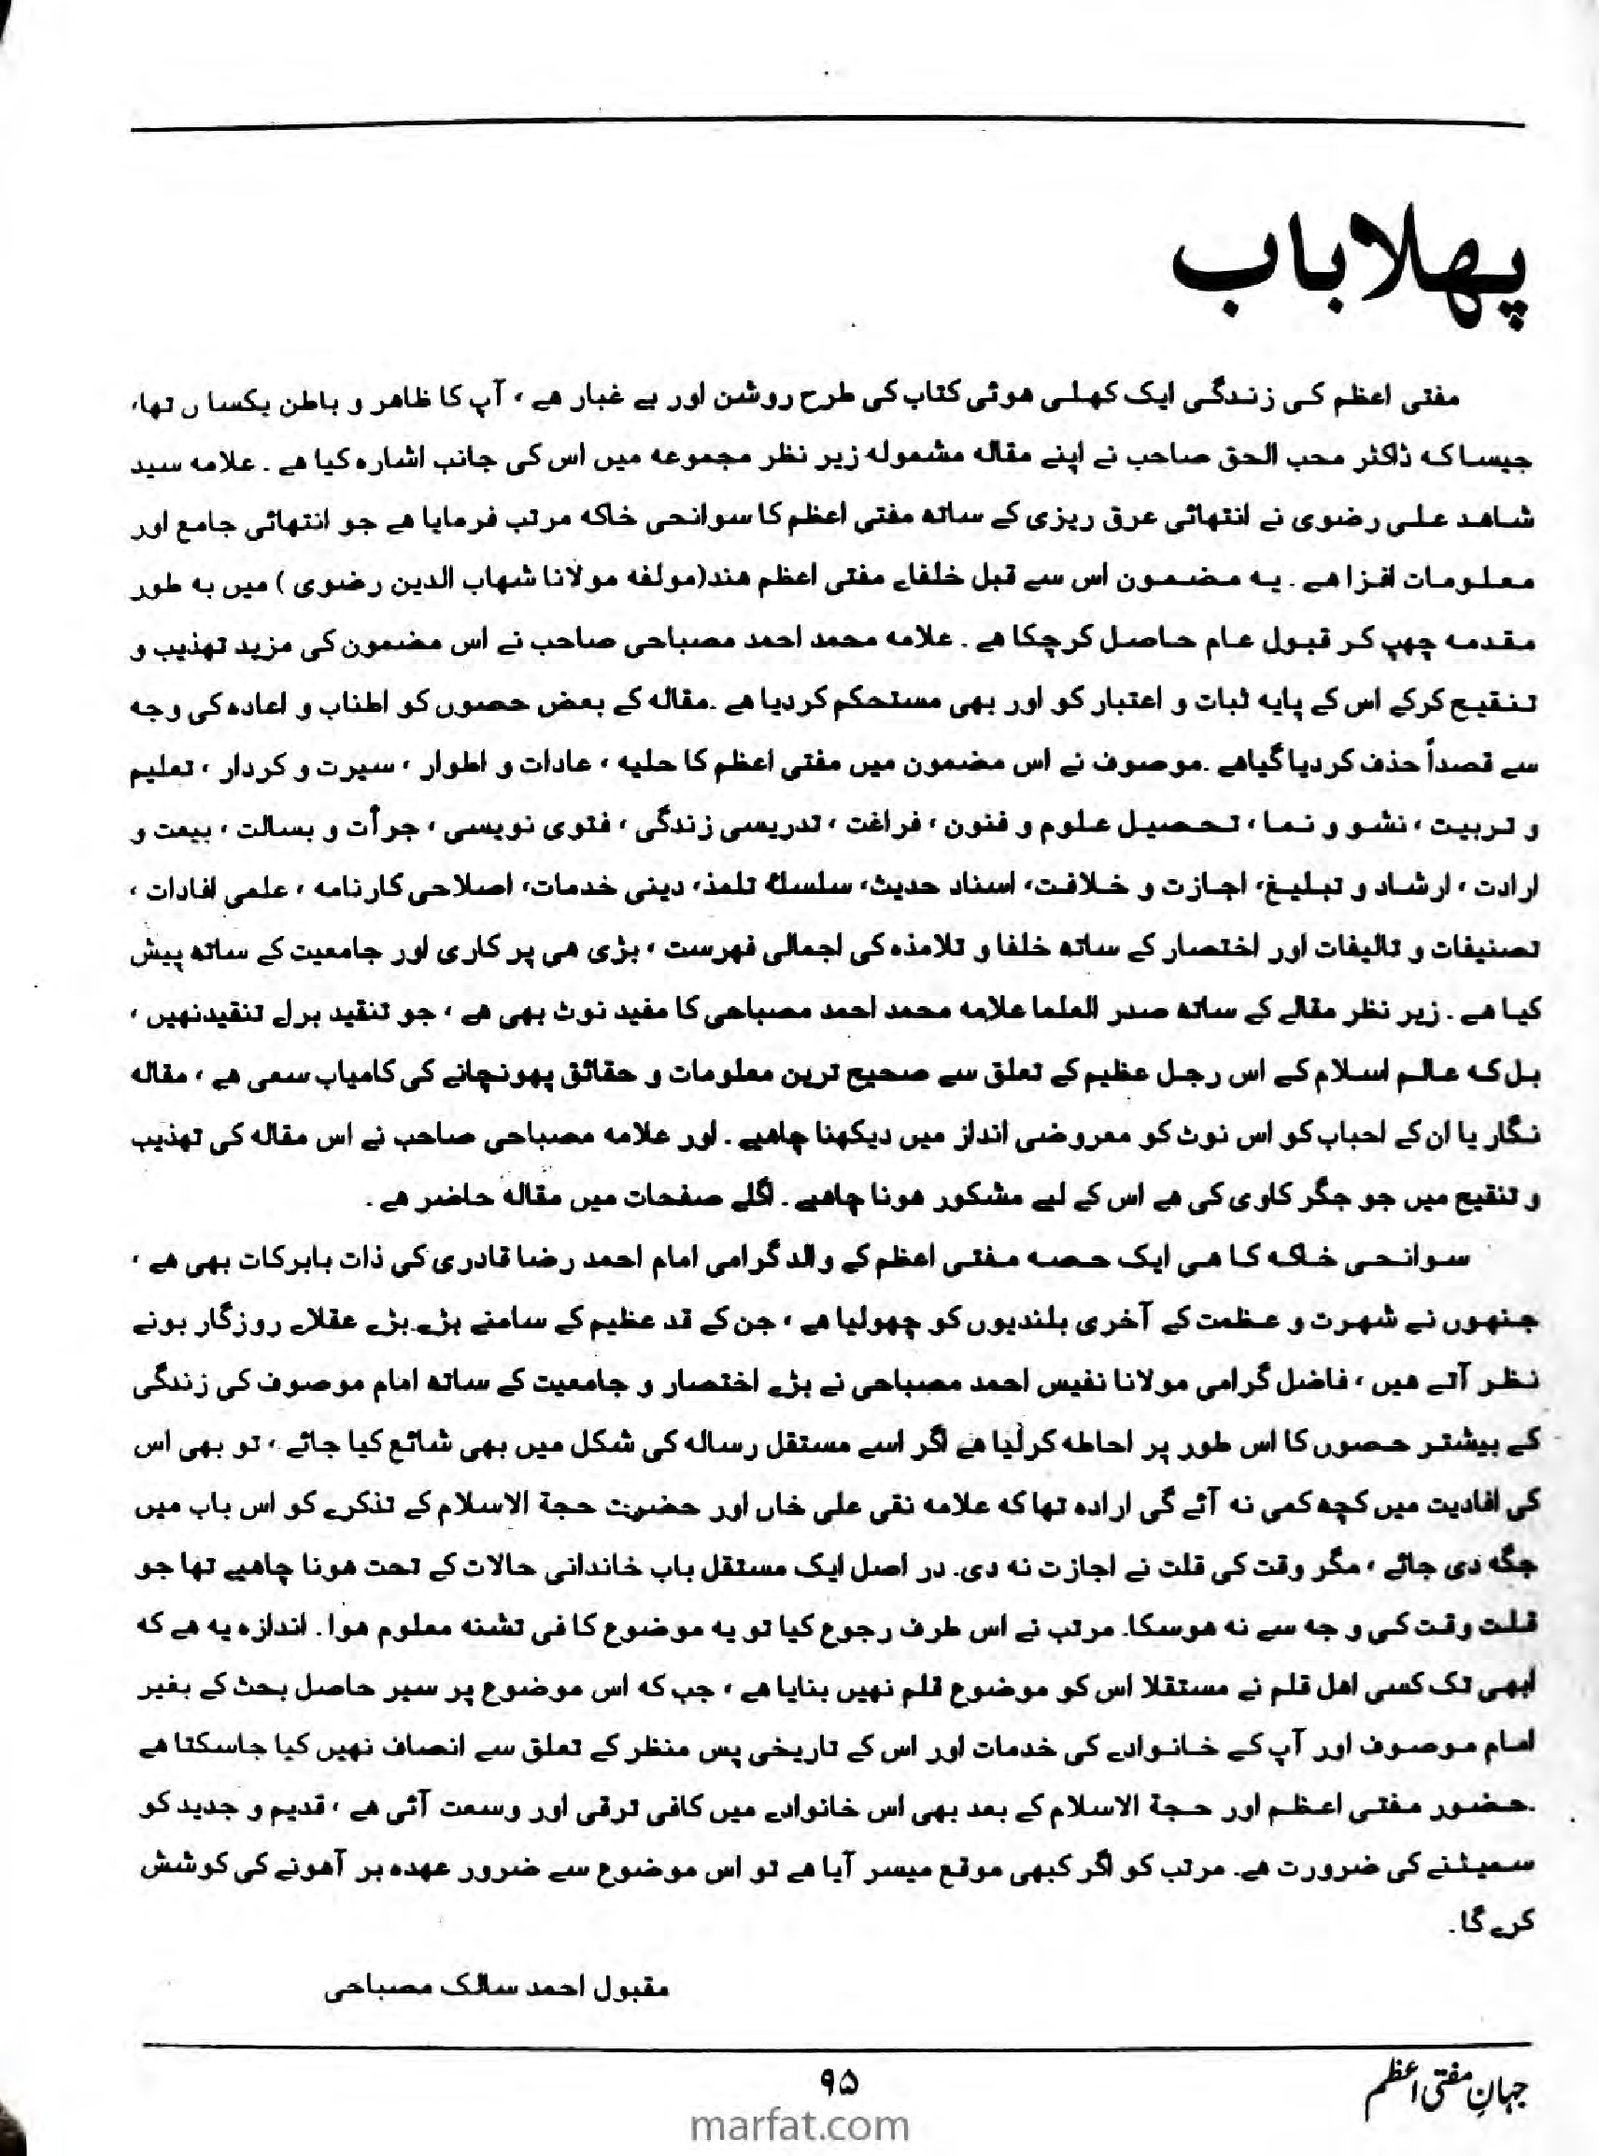 پہلا باب
مفتی اعظم کی زندگی ایک کھلی ھوئی کتاب کی طرح روشن اور بے غبار ھے ، آپ کا ظاھر و باطن یکسا ں تھا،
جیسا کہ ڈاکٹر محب الحق صاحب نے اپنے مقالہ مشمولہ زیر نظر مجموعہ میں اس کی جانب اشارہ کیا ھے . علامہ سید
شاھد علی رضوی نے انتھائی عرق ریزی کے ساتھ مفتی اعظم کا سوانحی خاکہ مرتب فرمایا ھے جو انتھائی جامع اور
معلومات افزا ھے . یہ مضمون اس سے قبل خلفاے مفتی اعظم ھند(مولفہ مولانا شھاب الدین رضوی ) میں بہ طور
مقدمہ چھپ کر قبول عام حاصل کرچکا ھے . علامہ محمد احمد مصباحی صاحب نے اس مضمون کی مزید تھذیب و
تنقیح کرکے اس کے پایہ ثبات و اعتبار کو اور بھی مستحکم کردیا ھے .مقالہ کے بعض حصوں کو اطناب و اعادہ کی وجہ
سے قصداً حذف کردیا گیاھے .موصوف نے اس مضمون میں مفتی اعظم کا حلیہ ، عادات و اطوار ، سیرت و کردار ، تعلیم
و تربیت ، نشو و نما ، تحصیل علوم و فنون ، فراغت ، تدریسی زندگی ، فتوی نویسی ، جرأت و بسالت ، بیعت و
ارادت ، ارشاد و تبلیغ، اجازت و خلافت، اسناد حدیث، سلسلۂ تلمذ، دینی خدمات، اصلاحی کارنامہ ، علمی افادات ،
تصنیفات و تالیفات اور اختصار کے ساتھ خلفا و تلامذہ کی اجمالی فھرست ، بڑی ھی پر کاری اور جامعیت کے ساتھ پیش
کیا ھے . زیر نظر مقالے کے ساتھ صدر العلما علامہ محمد احمد مصباحی کا مفید نوٹ بھی ھے ، جو تنقید براے تنقیدنھیں ،
بل کہ عالم اسلام کے اس رجل عظیم کے تعلق سے صحیح ترین معلومات و حقائق پھونچانے کی کامیاب سعی ھے ، مقالہ
نگار یا ان کے احباب کو اس نوٹ کو معروضی انداز میں دیکھنا چاھیے . اور علامہ مصباحی صاحب نے اس مقالہ کی تھذیب
و تنقیح میں جو جگر کاوی کی ھے اس کے لیے مشکور ھونا چاھیے . اگلے صفحات میں مقالہ حاضر ھے .
سوانحی خاکہ کا ھی ایک حصہ مفتی اعظم کے والد گرامی امام احمد رضا قادری کی ذات بابرکات بھی ھے ،
جنھوں نے شھرت و عظمت کے آخری بلندیوں کو چھولیا ھے ، جن کے قد عظیم کے سامنے بڑے بڑے عقلاے روزگار بونے
نظر آتے ھیں ، فاضل گرامی مولانا نفیس احمد مصباحی نے بڑے اختصار و جامعیت کے ساتھ امام موصوف کی زندگی
کے بیشتر حصوں کا اس طور پر احاطہ کرلیا ھے اگر اسے مستقل رسالہ کی شکل میں بھی شائع کیا جائے ، تو بھی اس
کی افادیت میں کچھ کمی نہ آئے گی ارادہ تھا کہ علامہ نقی علی خاں اور حضرت حجۃ الاسلام کے تذکرے کو اس باب میں
جگہ دی جائے ، مگر وقت کی قلت نے اجازت نہ دی. در اصل ایک مستقل باب خاندانی حالات کے تحت ھونا چاھیے تھا جو
قلت وقت کی وجہ سے نہ ھوسکا. مرتب نے اس طرف رجوع کیا تو یہ موضوع کافی تشنہ معلوم ھوا . اندازہ یہ ھے کہ
ابھی تک کسی اھل قلم نے مستقلا اس کو موضوع قلم نھیں بنایا ھے ، جب کہ اس موضوع پر سیر حاصل بحث کے بغیر
امام موصوف اور آپ کے خانوادے کی خدمات اور اس کے تاریخی پس منظر کے تعلق سے انصاف نھیں کیا جاسکتا ھے
.حضور مفتی اعظم اور حجۃ الاسلام کے بعد بھی اس خانوادے میں کافی ترقی اور وسعت آئی ھے ، قدیم و جدید کو
سمیٹنے کی ضرورت ھے. مرتب کو اگر کبھی موقع میسر آیا ھے تو اس موضوع سے ضرور عھدہ بر آھونے کی کوشش
کرے گا .
مقبول احمد سالک مصباحی
جہانِ مفتی اعظم
۹۵
marfat.com